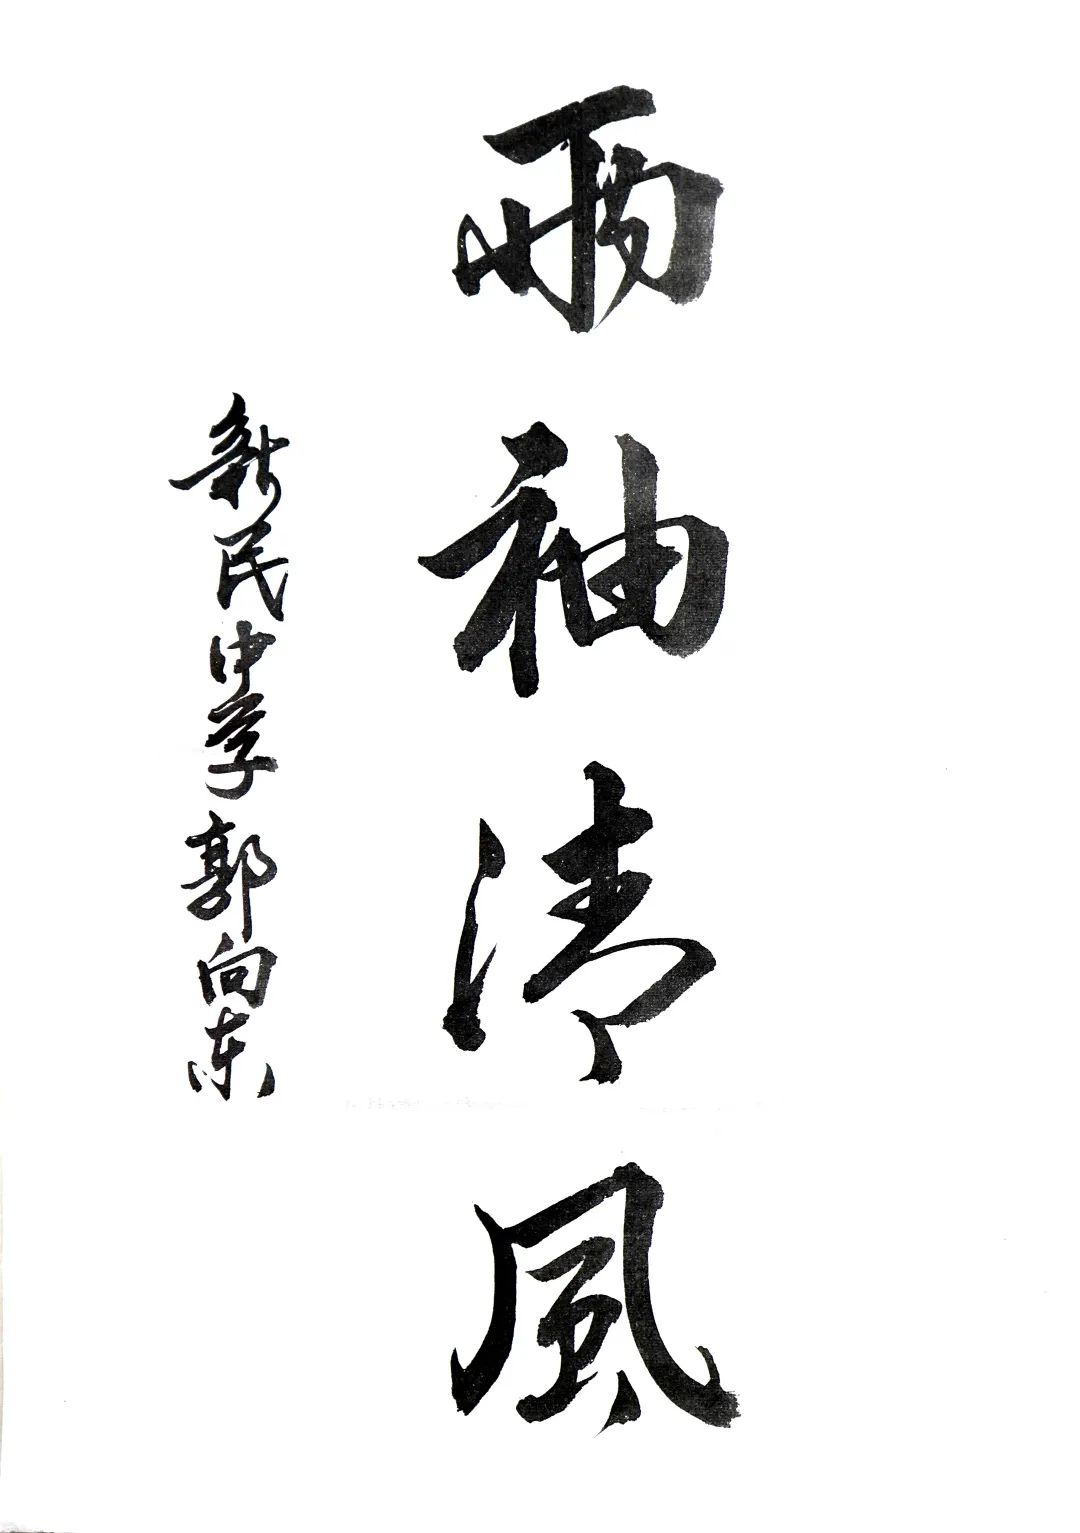 兩袖清風
新民中学郭向东